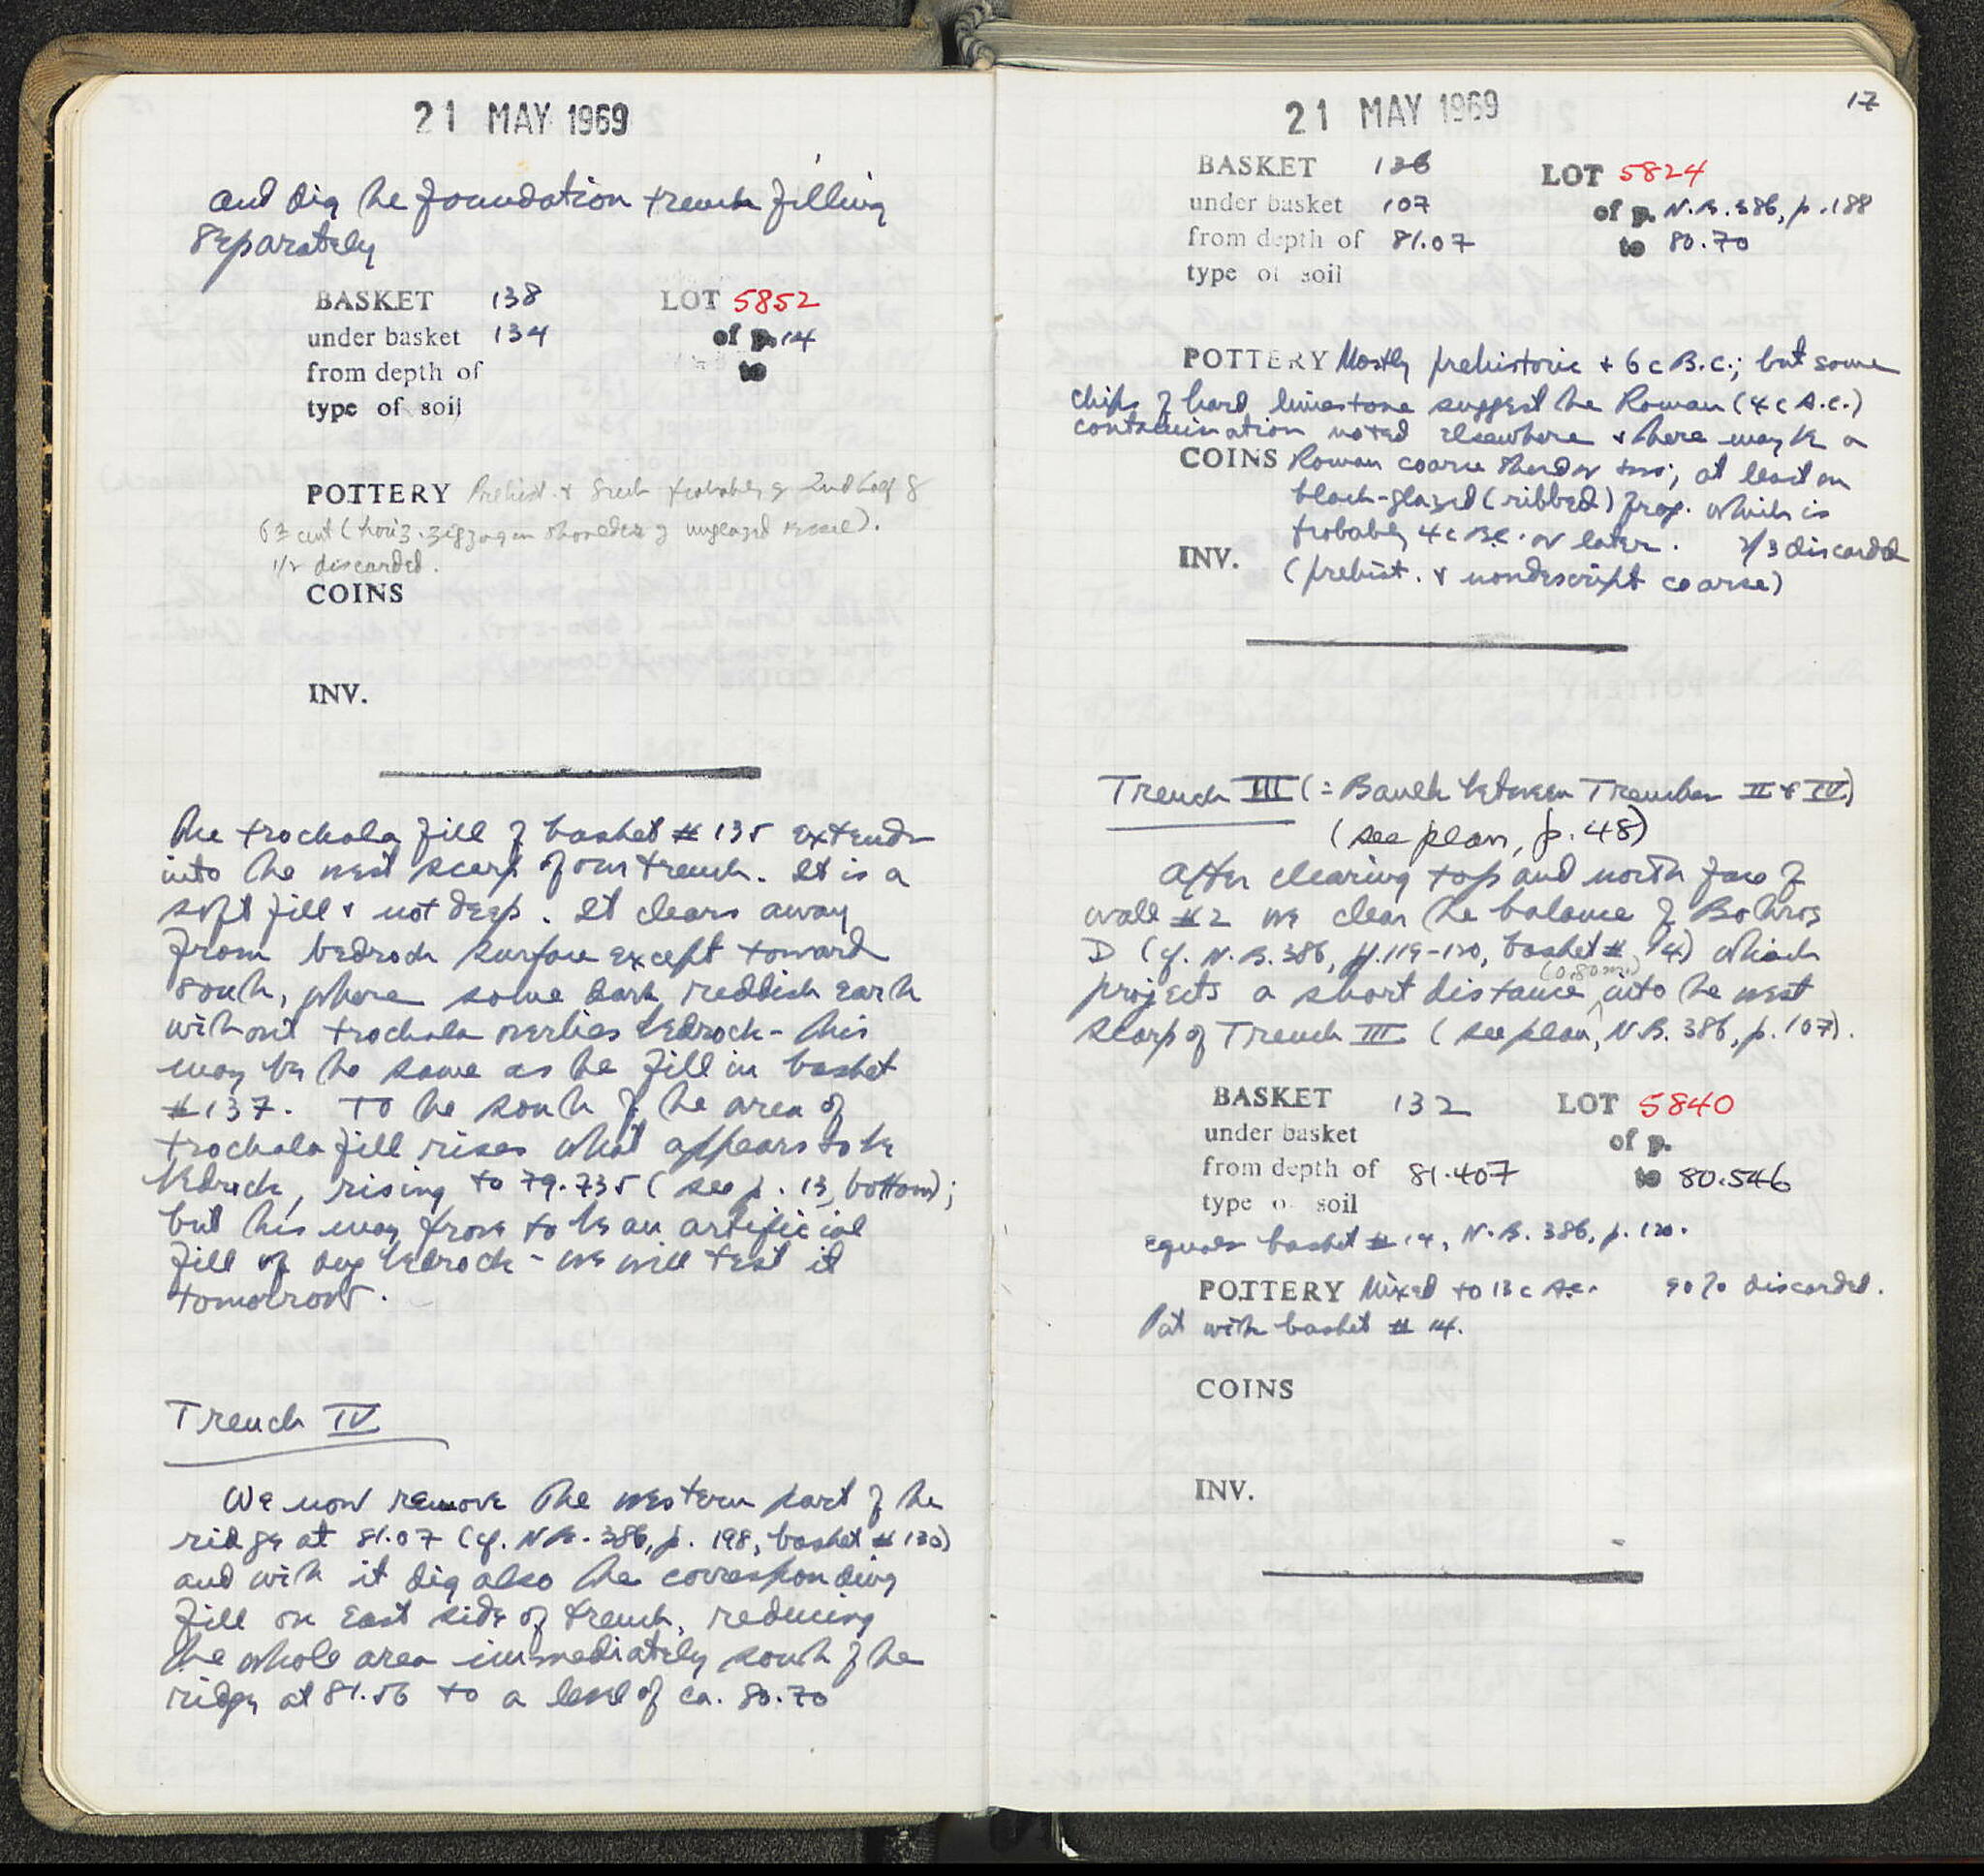 21 MAY 1969
and dig the foundation trench filling
separately
BASKET 138 LOT 5852
under basket 134 of p. 14
from depth of to
type of soil
POTTERY Prehist. & Greek probably of 2nd half of
6th cent (horiz. zigzag on shoulder of unglazed vessel).
1/2 discarded.
COINS
INV.
The trochala fill of basket # 135 extends
into the west scarp of our trench. It is a
soft fill & not deep. It clears away
from bedrock surface except toward
south, where some dark reddish earth
without trochala overlies bedrock - this
may be the same as the fill in basket
#137. To the south of the area of
trochala fill rises what appears to be
bedrock, rising to 79.735 (see p. 13, bottom);
but this may prove to be an artificial
fill of dug bedrock - we will test it
tomorrow.
Trench IV
We now remove the western part of the
ridge at 81.07 (cf. N.B. 386, p. 198, basket # 130)
and with it dig also the corresponding
fill on East side of trench, reducing
the whole area immediately south of the
ridge at 81.56 to a level of ca. 80.70
21 MAY 1969 17
BASKET 136 LOT 5824
under basket 107 of p. N.B. 386, p. 188
from depth of 81.07 to 80.70
type of soil
POTTERY Mostly prehistoric & 6 c B.C.; but some
chips of hard limestone suggest the Roman (4 c A.C.)
contamination noted elsewhere & there may be a
COINS Roman coarse sherd or two; at least one
black-glazed (ribbed) frag. which is
probably 4 c B.C. or later. 2/3 discarded
INV. (prehist. & nondescript coarse)
Trench III (= Baulk between Trenches II & IV)
(see plan, p. 48)
After clearing top and north face of
wall #2 we clear the balance of Bothros
D (cf. N.B. 386, pp. 119-120, basket # 14) which
projects a short distance (0.80 m.) into the west
scarp of Trench III (see plan, N.B. 386, p. 107).
BASKET 132 LOT 5840
under basket of p.
from depth of 81.407 to 80.546
type of soil
equals basket # 14, N.B. 386, p. 120.
POTTERY Mixed to 13 c A.C. 90% discarded.
Put with basket # 14.
COINS
INV.